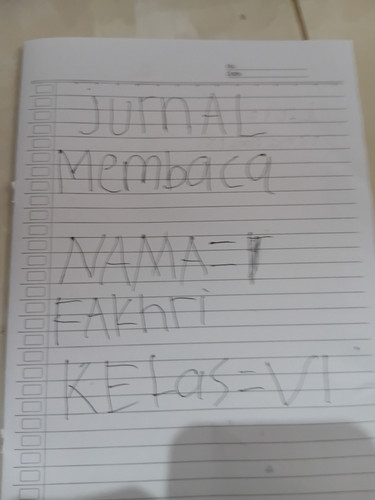 JurnAL
Membaca
NAMA=
FAKhri
KELas=VI